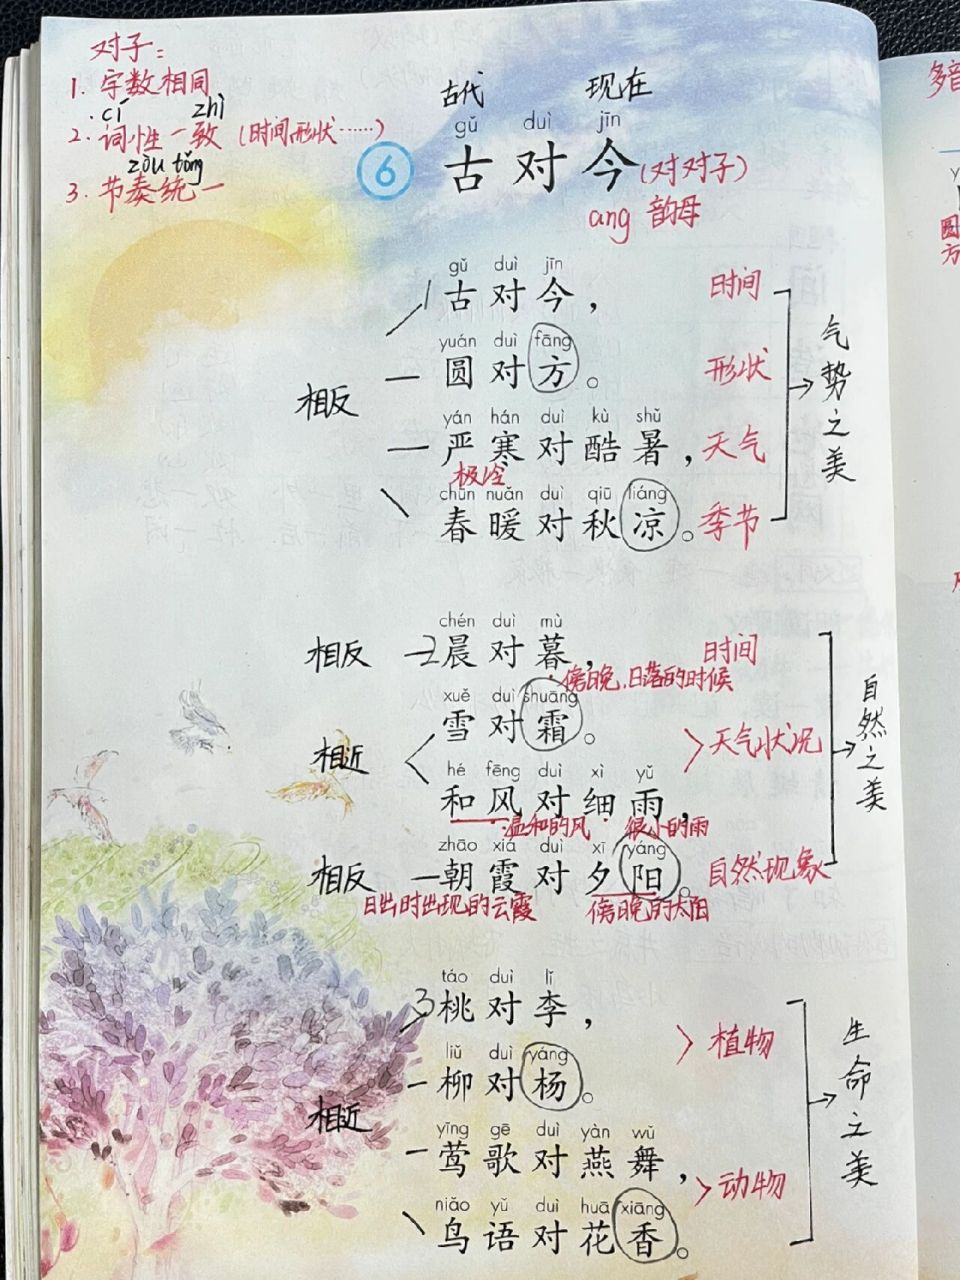 对子：
1. 字数相同
cí zhì
2. 词性一致（时间形状……）
zòu tǒng
3. 节奏统一
古代 现在
gǔ duì jīn
6 古对今（对对子）
ang 韵母
gǔ duì jīn
1古对今， 时间
yuán duì fāng
圆对方。 形状
相反
yán hán duì kù shǔ
严寒对酷暑， 天气
极冷
chūn nuǎn duì qiū liáng
春暖对秋凉。 季节
气势之美
chén duì mù
相反 2晨对暮， 时间
傍晚，日落的时候
xuě duì shuāng
雪对霜。
相近 天气状况
hé fēng duì xì yǔ
和风对细雨，
温和的风 很小的雨
zhāo xiá duì xī yáng
相反 朝霞对夕阳。 自然现象
日出时出现的云霞 傍晚的太阳
自然之美
táo duì lǐ
3桃对李，
植物
liǔ duì yáng
柳对杨。
相近
yīng gē duì yàn wǔ
莺歌对燕舞，
动物
niǎo yǔ duì huā xiāng
鸟语对花香。
生命之美
多音
圆
方